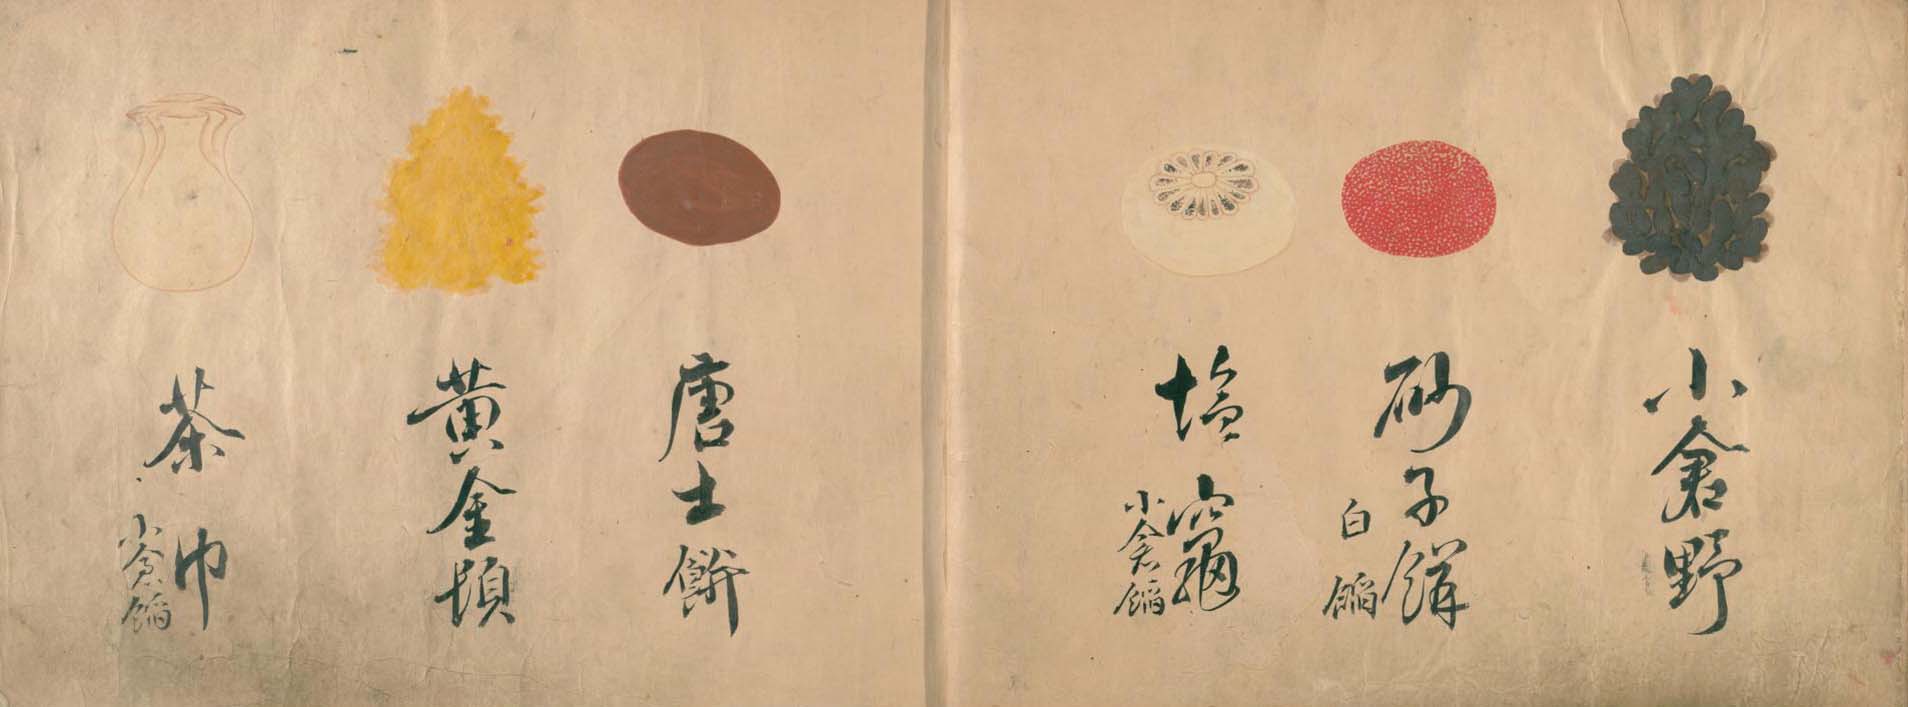 小倉野
砂子餅
白餡
塩竈
小倉餡
唐土餅
黄金頓
茶巾
小倉餡